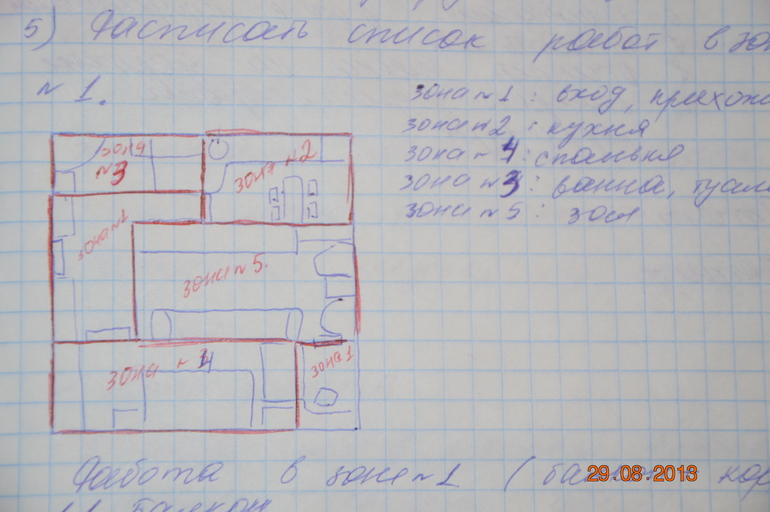 5) Расписать список работ в зо
№1.
зона №1: вход, прихожа
зона №2: кухня
зона №4: спальня
зона №3: ванна, туал
зона №5: зал
зона №3
зона №2
зона №1
зона №5.
зона №4
зона 1
Работа в зоне №1 ( кор
29.08.2013
балкон